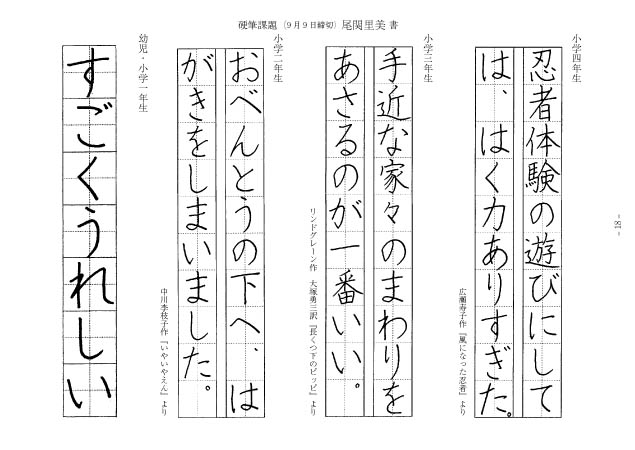 硬筆課題（9月9日締切）尾関里美 書
小学四年生
忍者体験の遊びにして
は、はく力ありすぎた。
広瀬寿子作『風になった忍者』より
小学三年生
手近な家々のまわりを
あさるのが一番いい。
リンドグレーン作 大塚勇三訳『長くつ下のピッピ』より
小学二年生
おべんとうの下へ、は
がきをしまいました。
中川李枝子作『いやいやえん』より
幼児・小学一年生
すごくうれしい
- 18 -